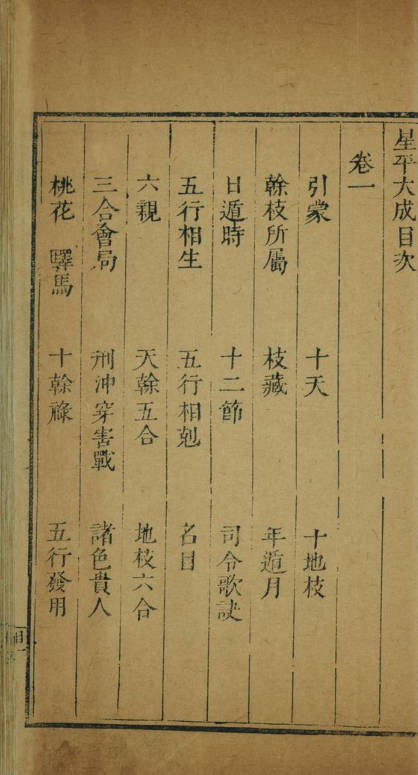 星平大成目次
卷一
引蒙 十天 十地枝
榦枝所屬 枝藏 年遁月
日遁時 十二節 司令歌訣
五行相生 五行相剋 名目
六親 天榦五合 地枝六合
三合會局 刑沖穿害戰 諸色貴人
桃花 驛馬 十榦祿 五行發用